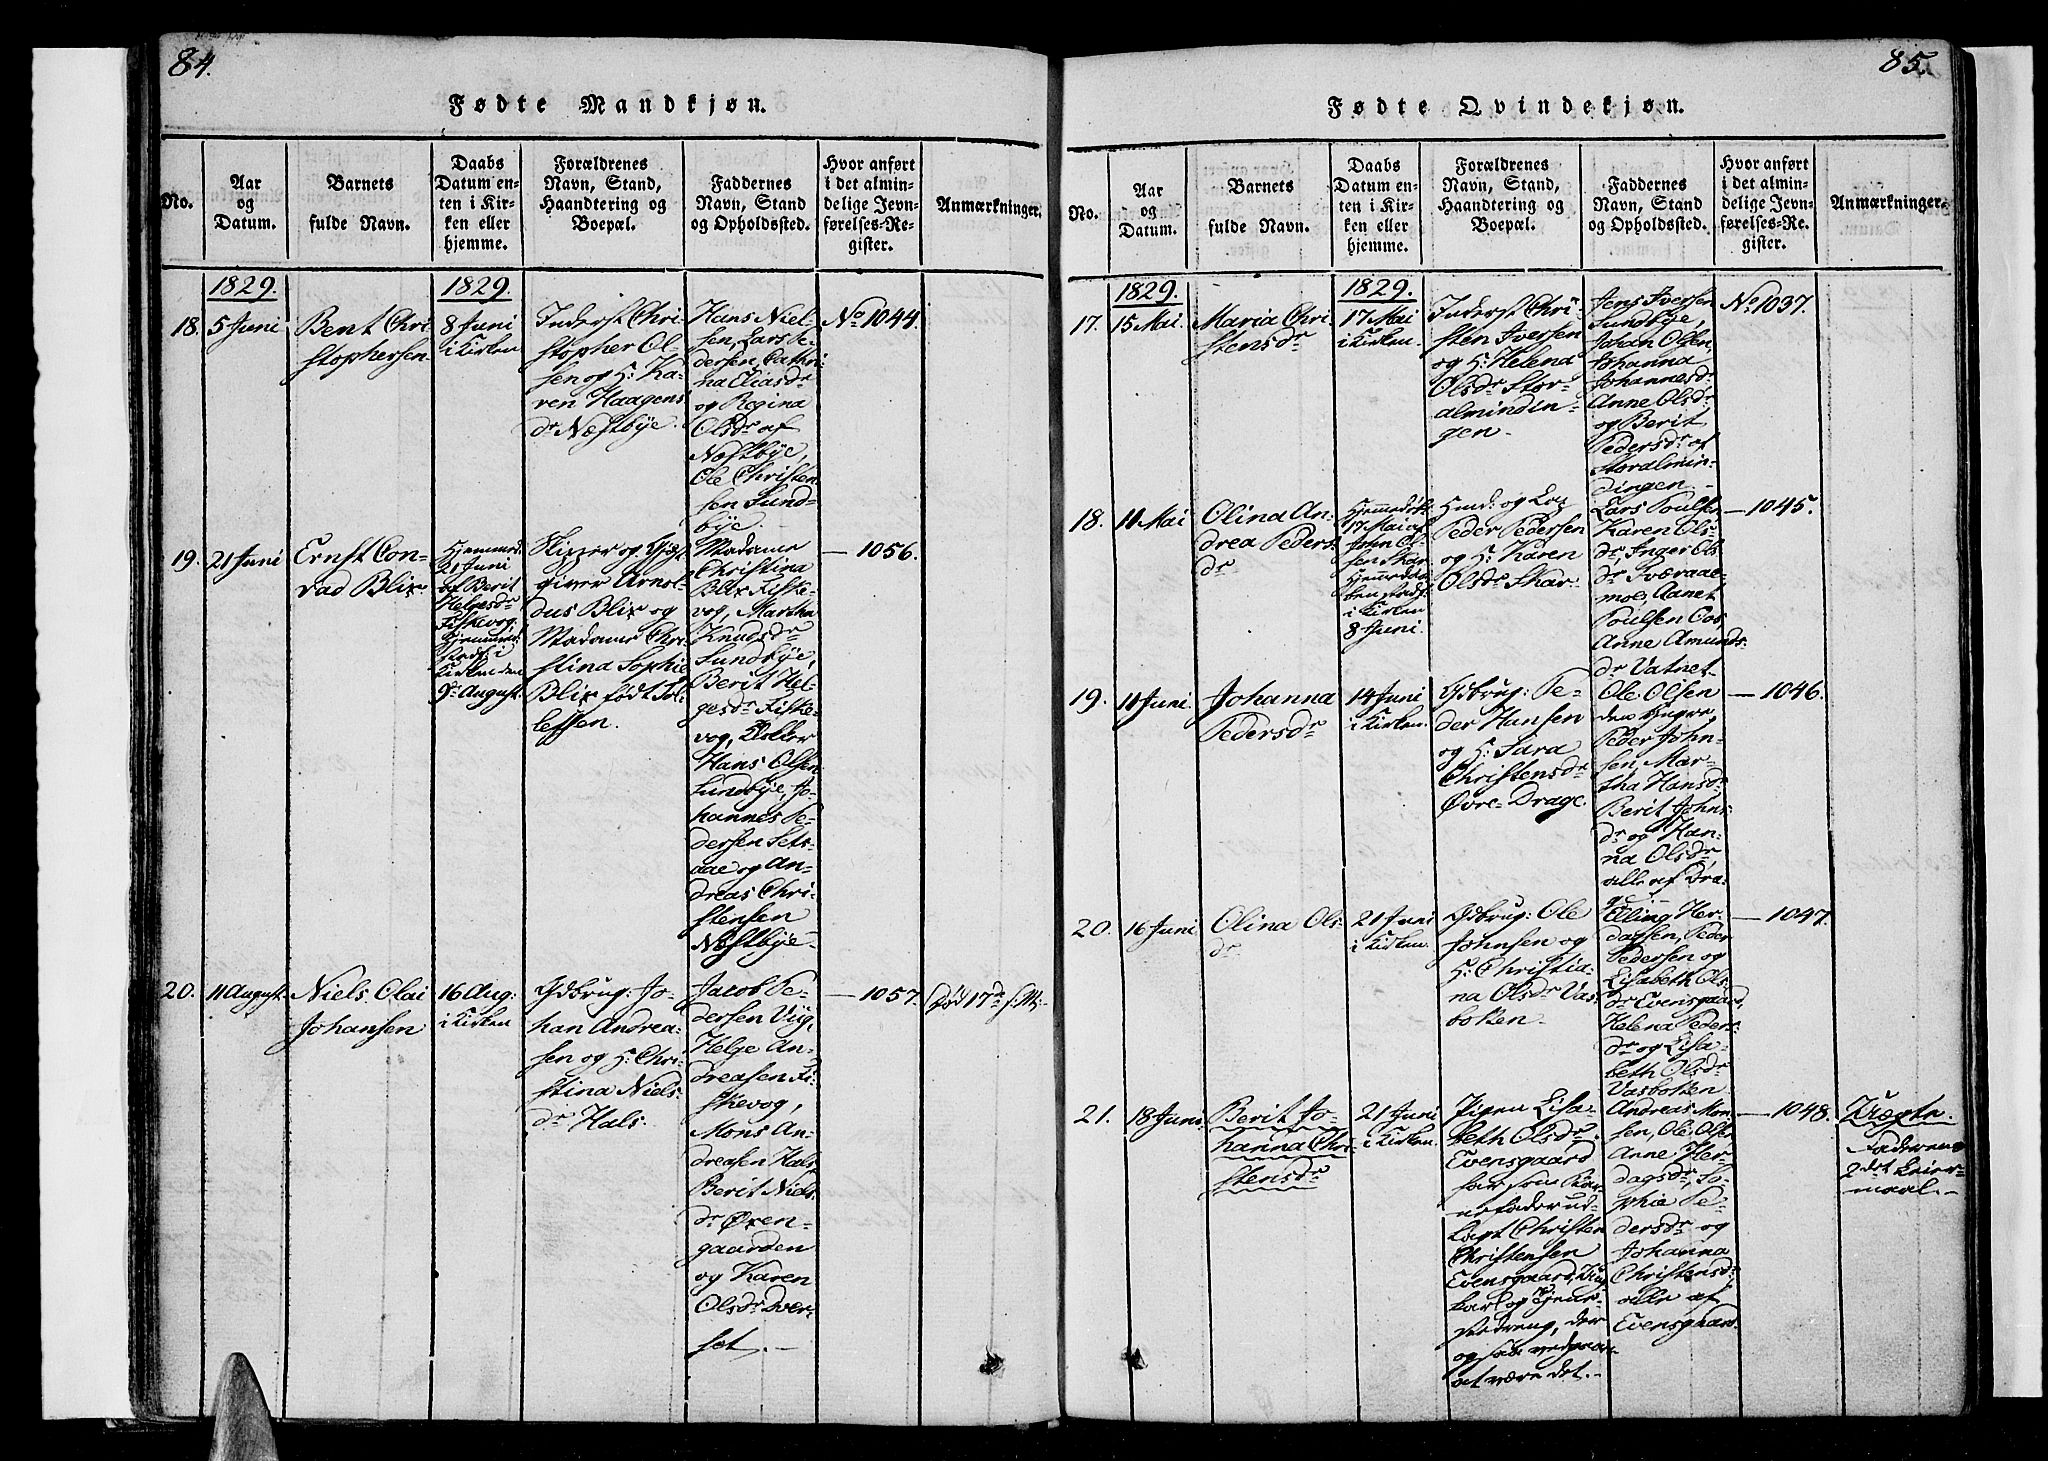 84.
Fødte Mandkjøn.
No.
Aar
og
Datum.
Barnets
fulde Navn.
Daabs
Datum en-
ten i Kir-
ken eller
hjemme.
Forældrenes
Navn, Stand,
Haandtering og
Boepæl.
Faddernes
Navn, Stand
og Opholdssted.
Hvor anført
i det almin-
delige Jevn-
førelses-Re-
gister.
Anmærkninger.
1829.
1829.
18.
5 Juni
Bent Chri-
stophersen
8 Juni
i Kirken
Inderst Chri-
stopher Ol-
sen og H: Ka-
ren Haagens
dr Næstbye.
Hans Niel-
sen, Lars Pe-
dersen, Cathri-
na Eliasdr
og Regina
Olsdr af
Næstbye,
Ole Christen
sen Sund-
bye.
No 1044
19.
21 Juni
Ernst Con-
rad Blix
Hjemmed.
21 Juni
af Berit
Helgesdr
Fiskevog.
Hjemmed.
stadf. i
Kirken den
9de August.
Skipper og Gjæst-
giver Arnol-
dus Blix og
Madame Chri-
stina Sophie
Blix født Tol-
lefsen.
Madame
Christina
Blix Fiske-
vog, Martha
Knudsdr
Sundbye,
Berit Hel-
gesdr Fiske-
vog, Klokker
Hans Olsen
Sundbye, Jo-
hannes Pe-
dersen Sets-
aae og An-
dreas Chri-
stensen
Næstbye
— 1056.
20.
11 August.
Niels Olai
Johansen
16 Aug:
i Kirken
Gdbrug: Jo-
han Andrea-
sen og H: Chri-
stina Niels-
dr Hals.
Jacob Pe-
dersen Viig,
Helge An-
dreasen Fi-
skevog,
Mons An-
dreasen Hals
Berit Niels-
dr Øxen-
gaarden
og Karen
Olsdr Dver-
set.
— 1057.
Død 17de s. M:
85.
Fødte Qvindekjøn.
No.
Aar
og
Datum.
Barnets
fulde Navn.
Daabs
Datum en-
ten i Kir-
ken eller
hjemme.
Forældrenes
Navn, Stand,
Haandtering og
Boepæl.
Faddernes
Navn, Stand
og Opholdssted.
Hvor anført
i det almin-
delige Jevn-
førelses-Re-
gister.
Anmærkninger.
1829.
1829.
17.
15 Mai.
Maria Chri-
stensdr
17 Mai
i Kirken.
Inderst Chri-
sten Iversen
og H: Helena
Olsdr Stor-
almindin-
gen.
Jens Iversen
Sundbye,
Johan Olsen,
Johanna
Johannesdr
Anne Olsdr
og Berit
Pedersdr af
Storalmin-
dingen.
No 1037.
18.
11 Mai
Olina An-
drea Peders-
dr
Hjemmedøbt
17 Mai af
John Ol-
sen Skar
Hjemmedaa-
ben stadf.
i Kirken
8 Juni.
Peder Pedersen
og H: Karen
Olsdr Skar
Lars Poulsen
Karen Ols-
dr, Inger Ols-
dr Sværaae-
moe,
Poulsen
Anne Amunds-
dr Vatnet
— 1045.
19.
11 Juni.
Johanna
Pedersdr
14 Juni
i Kirken.
Gdbrug: Pe-
der Hansen
og H: Sara
Christensdr
Øvre-Drage.
Ole Olsen
den yngre,
Peder John-
sen, Mar-
tha Hansdr
Berit Johns-
dr og Han-
na Olsdr,
alle af Dra-
ge
— 1046.
20.
16 Juni
Olina Ols-
dr
21 Juni
i Kirken.
Gdbrug: Ole
Johnsen og
H: Christia-
na Olsdr Vas-
botten.
Elling Her-
dagsen, Peder
Pedersen og
Lisabeth Ols-
dr Evensgaard,
Helena Peders-
dr og Lisa-
beth Olsdr
Vasbotten
— 1047.
21.
18 Juni
Berit Jo-
hanna Chri-
stensdr
21 Juni
i Kirken.
Pigen Lisa-
beth Olsdr
Evensgaard
har som Bar-
nefader ud-
lagt Christen
Christensen
Evensgaard, Ung-
karl og Tjene-
stedreng, der
ogsaa vedgaaer
at være det.
Andreas Mon-
sen, Ole Olsen
Anne Her-
dagsdr, So-
phie Pe-
dersdr og
Johanna
Christensdr
alle af
Evensgaard.
— 1048.
Uægte.
Faderens
2det Leier-
maal.